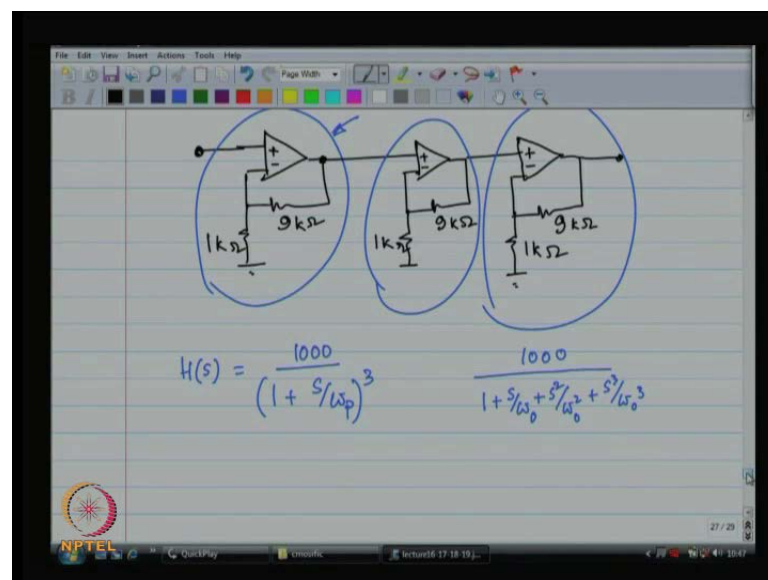 File Edit View Insert Actions Tools Help
Page Width
B I
+ + +
- - -
9kΩ 9kΩ 9kΩ
1kΩ 1kΩ 1kΩ
H(s) = 1000 / (1 + s/ωp)^3
1000 / 1 + s/ω0 + s^2/ω0^2 + s^3/ω0^3
27 / 29
NPTEL
QuickPlay cmosrfic lecture16-17-18-19.j...
10:47